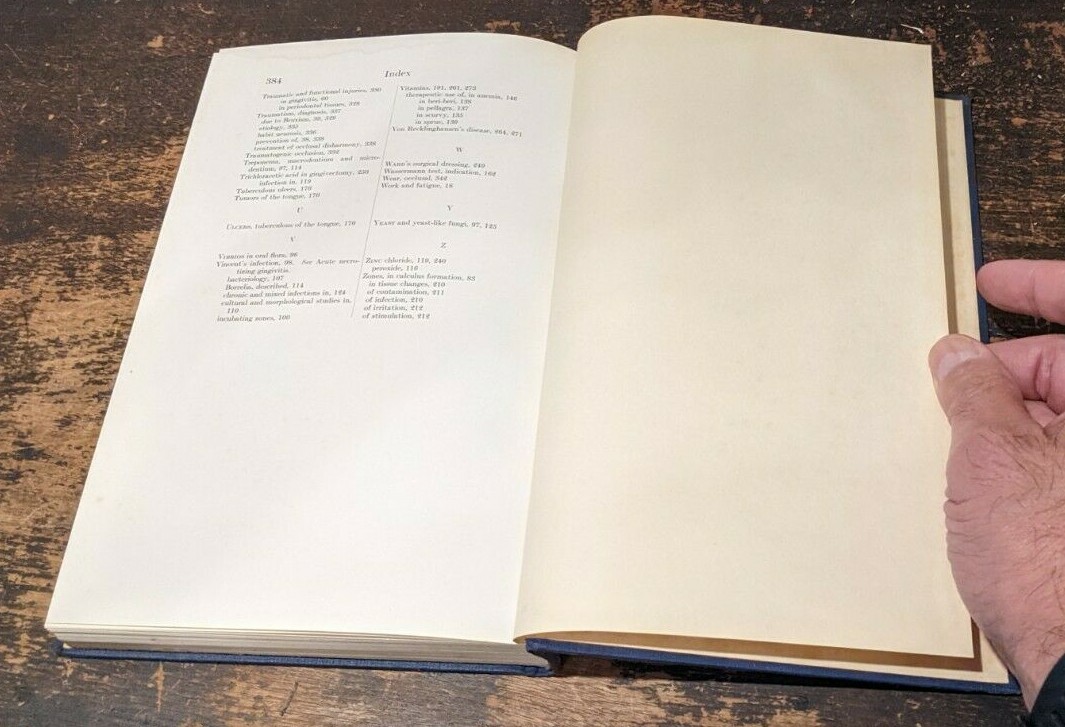 384
Index
Traumatic and functional injuries, 330
in gingivitis, 60
in periodontal tissues, 329
Traumatism, diagnosis, 337
due to Bruxism, 30, 329
etiology, 332
habit neurosis, 336
prevention of, 38, 338
treatment of occlusal disharmony, 338
Traumatogenic occlusion, 332
Treponema, macrodentium and micro-
dentium, 97, 114
Trichloracetic acid in gingivectomy, 232
infection in, 119
Tuberculous ulcers, 170
Tumors of the tongue, 170
U
Ulcers, tuberculous of the tongue, 170
V
Vibrios in oral flora, 96
Vincent's infection, 98. See Acute necro-
tizing gingivitis.
bacteriology, 107
Borrelia, described, 114
chronic and mixed infections in, 124
cultural and morphological studies in,
110
incubating zones, 100
Vitamins, 101, 261, 273
therapeutic use of, in anemia, 146
in beri-beri, 138
in pellagra, 137
in scurvy, 135
in sprue, 139
Von Recklinghausen's disease, 264, 271
W
Ward's surgical dressing, 240
Wassermann test, indication, 162
Wear, occlusal, 342
Work and fatigue, 16
Y
Yeast and yeast-like fungi, 97, 123
Z
Zinc chloride, 119, 240
peroxide, 119
Zones, in calculus formation, 83
in tissue changes, 210
of contamination, 211
of infection, 210
of irritation, 212
of stimulation, 212